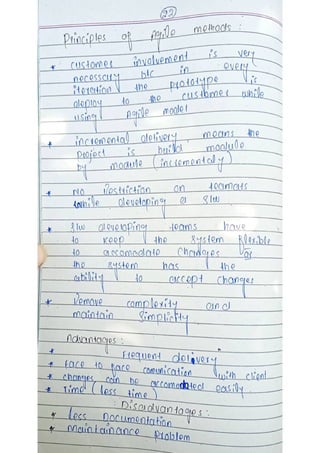 22
Principles of Agile methods :
* customer involvement is very
necessary b/c in every
iteration the prototype is
deploy to the customer while
using Agile model
* incremental delivery means the
project is build module
by module (incrementaly)
* No Restriction on teamates
while developing a S/W
* The developing teams have
to keep the system flexible
to accomodate changes or
the system has the
ability to accept changes
* Remove complexity and
maintain simplicity
Advantages :
* Frequent delivery
* Face to face comunication with client
* changes can be accomodated easily.
* Time (less time)
: Disadvantages :
* Less Documentation
* Maintainance Problem